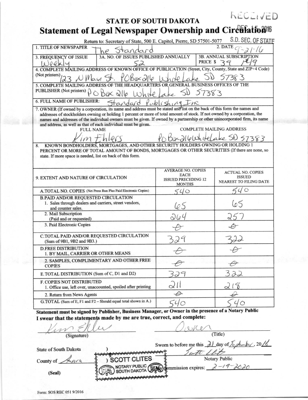 RECEIVED
STATE OF SOUTH DAKOTA
Statement of Legal Newspaper Ownership and Circulation
Return to: Secretary of State, 500 E. Capitol, Pierre, SD 57501-5077
S.D. SEC OF STATE
1. TITLE OF NEWSPAPER The Standard
2. DATE
3. FREQUENCY OF ISSUE Weekly
3A. NO. OF ISSUES PUBLISHED ANNUALLY 52
3B. ANNUAL SUBSCRIPTION PRICE $
4. COMPLETE MAILING ADDRESS OF KNOWN OFFICE OF PUBLICATION (Street, City, County, State and ZIP + 4 Code)
(Not printers)
123 N Main St. PO Box 216 White Lake SD 57383
5. COMPLETE MAILING ADDRESS OF THE HEADQUARTERS OR GENERAL BUSINESS OFFICES OF THE
PUBLISHER (Not printers) PO Box 216 White Lake SD 57383
6. FULL NAME OF PUBLISHER: Standard Publishing, Inc
7. OWNER (If owned by a corporation, its name and address must be stated and
addresses of stockholders owning or holding 1 percent or more of total amount of stock. If not owned by a corporation, the
names and addresses of the individual owners must be given. If owned by a partnership or other unincorporated firm, its name
and address, as well as that of each individual must be given.
FULL NAME
COMPLETE MAILING ADDRESS
Kim Ehlers
PO Box 216 White Lake SD 57383
8. KNOWN BONDHOLDERS, MORTGAGEES, AND OTHER SECURITY HOLDERS OWNING OR HOLDING 1
PERCENT OR MORE OF TOTAL AMOUNT OF BONDS, MORTGAGES OR OTHER SECURITIES (If there are none, so
state. If more space is needed, list on back of this form.
9. EXTENT AND NATURE OF CIRCULATION
AVERAGE NO. COPIES EACH ISSUED PRECEDING 12 MONTHS
ACTUAL NO. COPIES ISSUED NEAREST TO FILING DATE
A. TOTAL NO. COPIES 540 540
B. PAID AND/OR REQUESTED CIRCULATION
1. Sales through dealers and carriers, street vendors,
and counter sales. 65 65
2. Mail Subscription
(Paid and or requested) 264 257
3. Paid Electronic Copies
C. TOTAL PAID AND/OR REQUESTED CIRCULATION
(Sum of 9B1, 9B2 and 9B3.) 329 322
D. FREE DISTRIBUTION
1. BY MAIL, CARRIER OR OTHER MEANS
2. SAMPLES, COMPLIMENTARY AND OTHER FREE
COPIES
E. TOTAL DISTRIBUTION (Sum of C, D1 and D2) 329 322
F. COPIES NOT DISTRIBUTED
1. Office use, left over, unaccounted, spoiled after printing 211 218
2. Return from News Agents
G. TOTAL (Sum of E, F1 and F2 - Should equal total shown in A.) 540 540
Statement must be signed by Publisher, Business Manager, or Owner in the presence of a Notary Public
I swear that the statements made by me are true, correct, and complete:
Kim Ehlers Owner
(Signature) (Title)
Sworn to before me this 21 day of September, 2016
State of South Dakota
Notary Public
County of Aurora
SCOTT CLITES
NOTARY PUBLIC
SOUTH DAKOTA
(Seal)
commission expires: 2-19-2020
Form: SOS/REC 051 9/2016